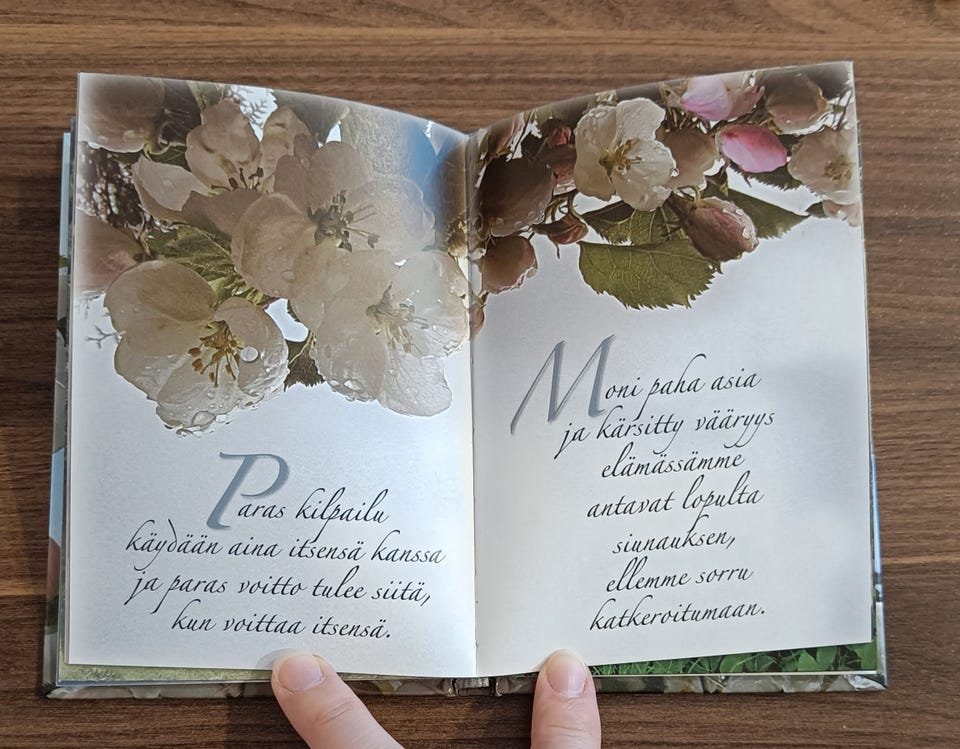 Paras kilpailu
käydään aina itsensä kanssa
ja paras voitto tulee siitä,
kun voittaa itsensä.
Moni paha asia
ja kärsitty vääryys
elämässämme
antavat lopulta
siunauksen,
ellemme sorru
katkeroitumaan.